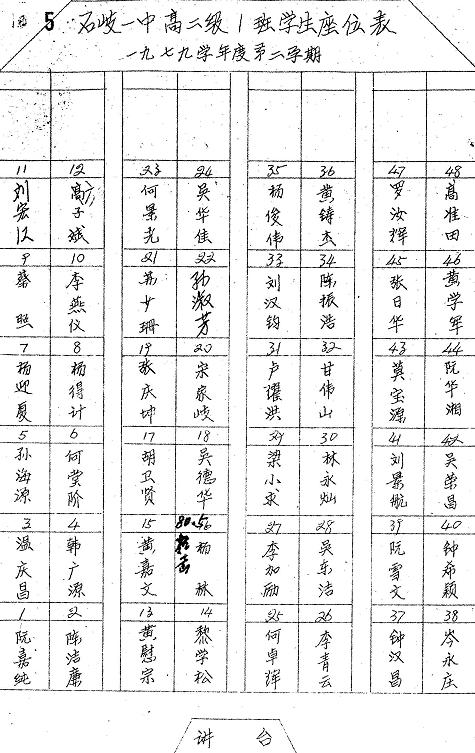 5 石岐一中高二级1班学生座位表
一九七九学年度第二学期
11 12 23 24 35 36 47 48
刘宏江 高子斌 何景光 吴华佳 杨俊伟 黄铸杰 罗汝辉 高准田
9 10 21 22 33 34 45 46
蔡照 李燕仪 苏少珊 孙淑芳 刘汉钧 陈振浩 张日华 黄学军
7 8 19 20 31 32 43 44
杨迎夏 杨得计 张庆坤 宋家岐 卢濯洪 甘伟山 莫宝源 阮华湘
5 6 17 18 29 30 41 42
孙海源 何莹阶 胡卫贤 吴德华 梁小求 林永灿 刘景航 吴荣昌
3 4 15 80.5 27 28 39 40
温庆昌 韩广源 黄嘉文 杨林 李加励 吴东洁 阮雪文 钟希颖
1 2 13 14 25 26 37 38
阮嘉纯 陈洁廉 黄慰宗 黎学松 何卓辉 李青云 钟汉昌 岑永庆
讲台